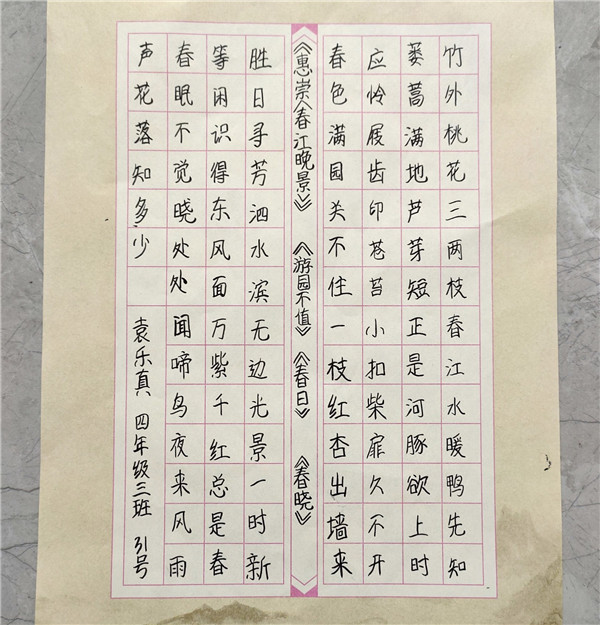 竹外桃花三两枝春江水暖鸭先知
蒌蒿满地芦芽短正是河豚欲上时
应怜屐齿印苍苔小扣柴扉久不开
春色满园关不住一枝红杏出墙来
《惠崇〈春江晚景〉》 《游园不值》 《春日》 《春晓》
胜日寻芳泗水滨无边光景一时新
等闲识得东风面万紫千红总是春
春眠不觉晓处处闻啼鸟夜来风雨
声花落知多少 袁乐真 四年级三班 31号